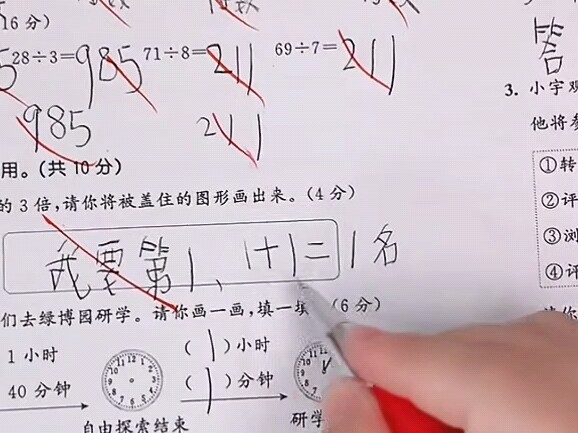 16分)
28÷3=985 71÷8=211 69÷7=211
985 211
答
3. 小宇观
他将参
用。(共10分)
的3倍,请你将被盖住的图形画出来。(4分)
我要第1、1+1=1名
们去绿博园研学。请你画一画,填一填。(6分)
1小时 (1)小时
40分钟 (1)分钟
自由探索结束 研学
①转
②评
③浏
④评